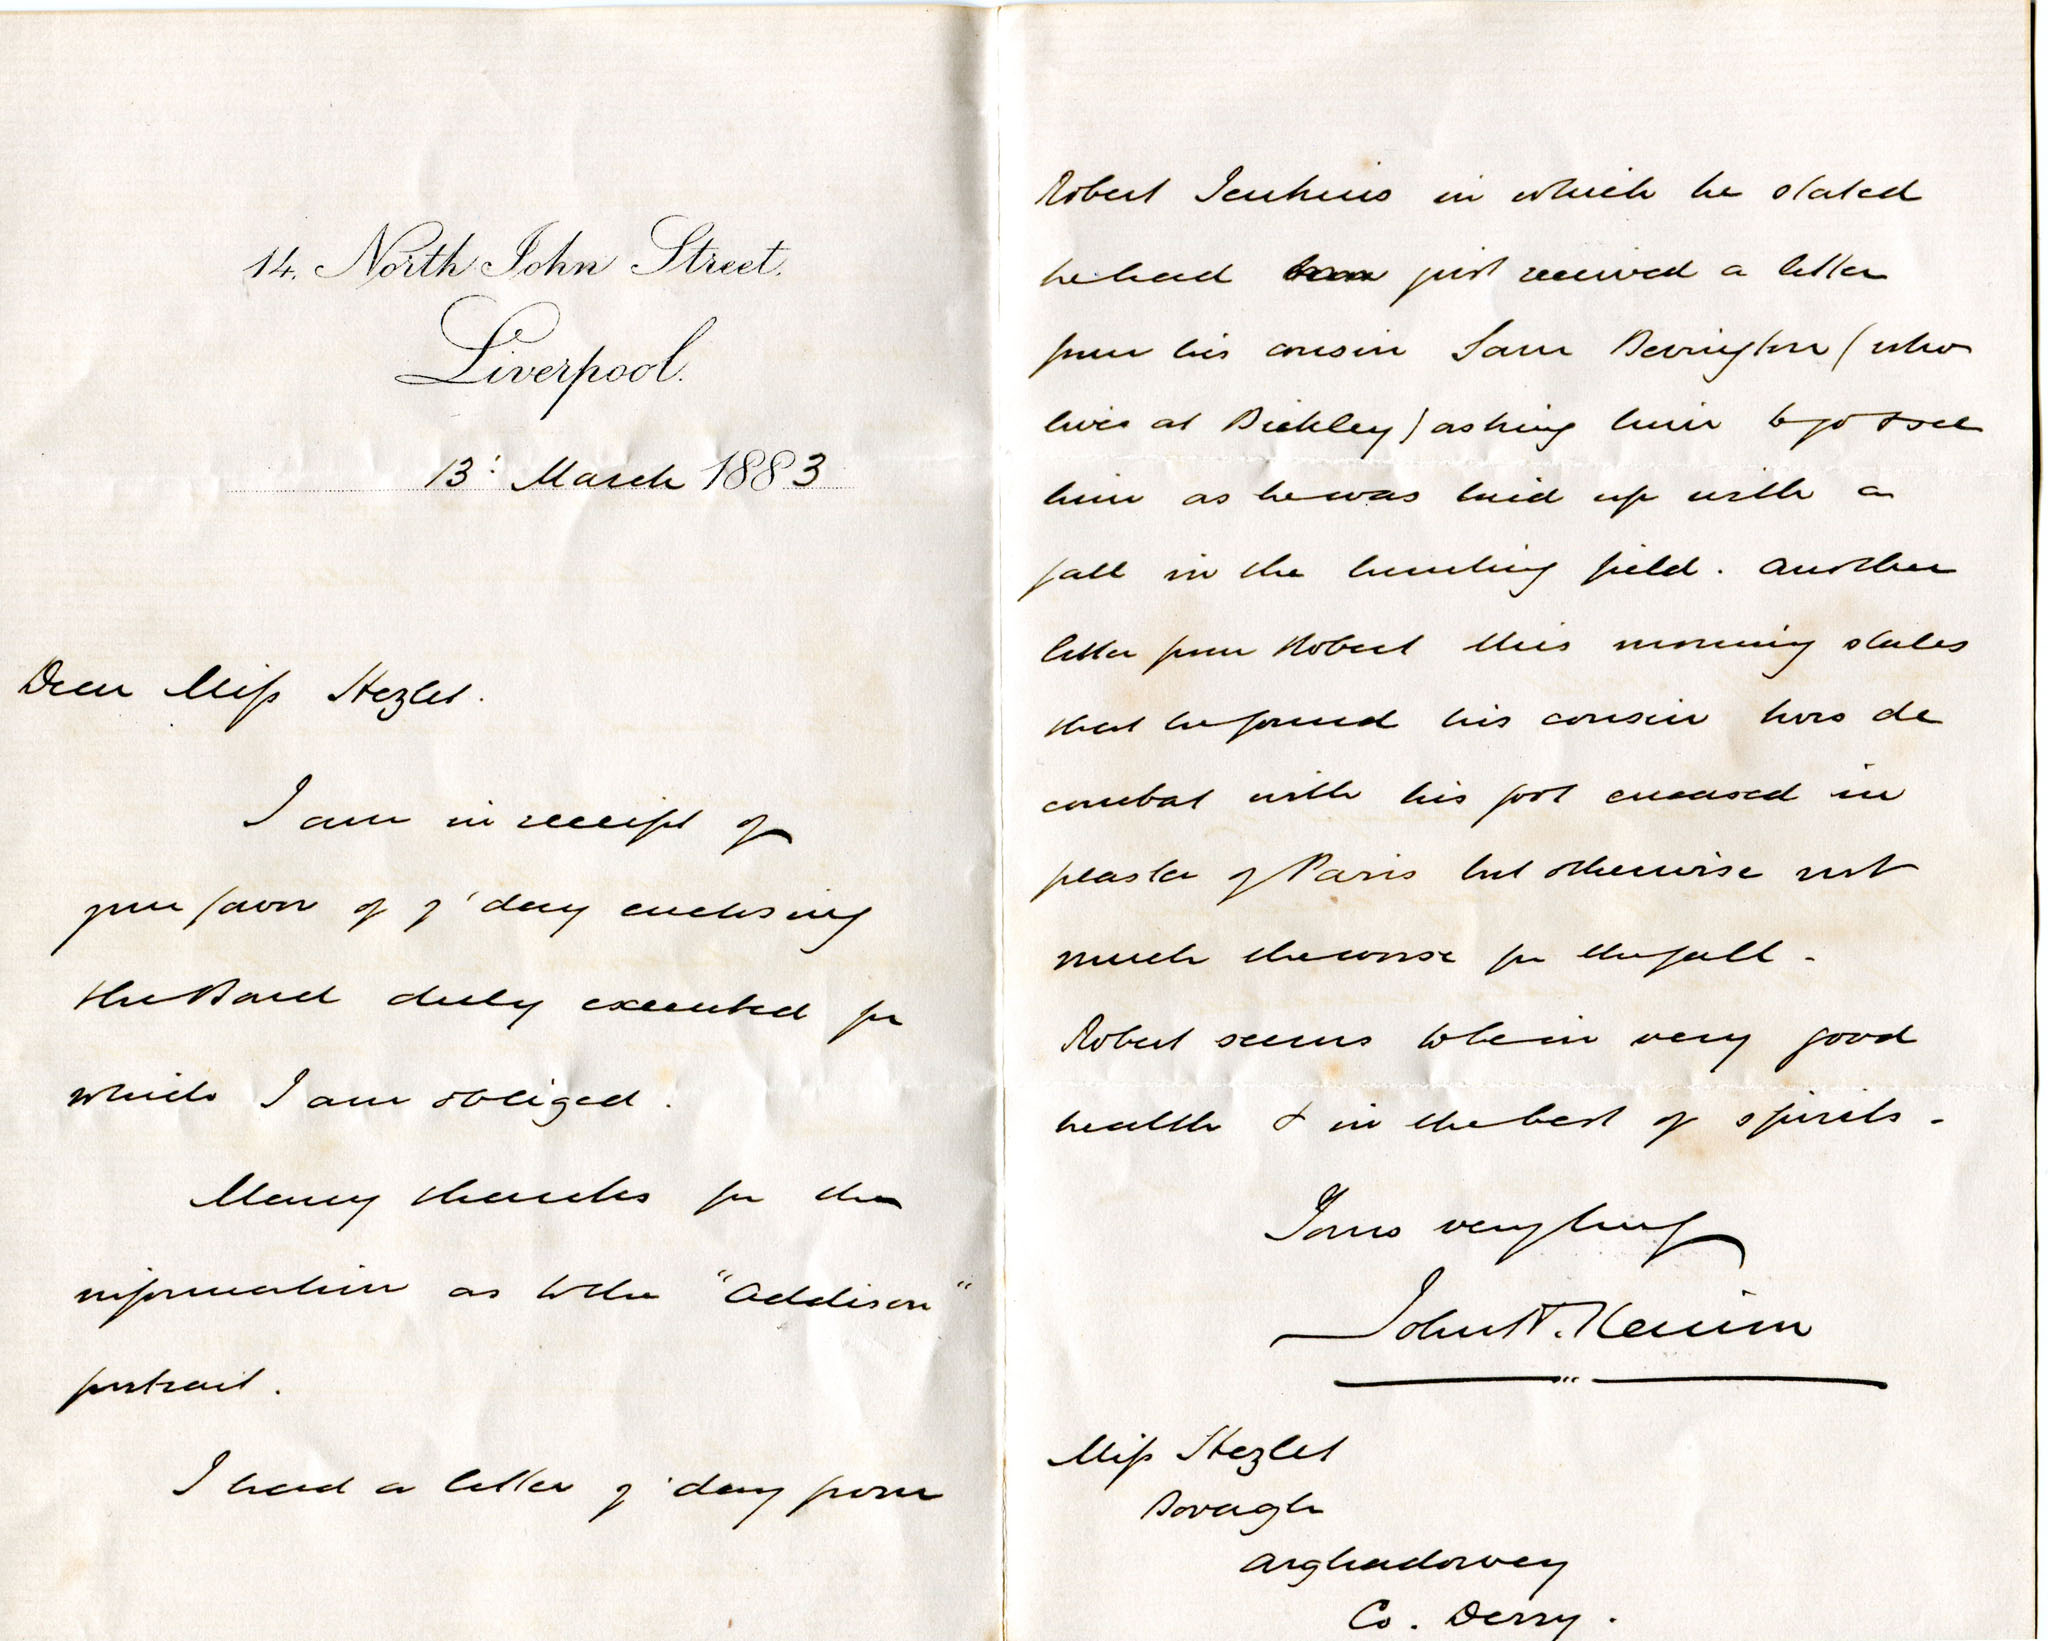 14, North John Street,
Liverpool.
13: March 1883
Dear Miss Hezlet.
I am in receipt of
your favor of y'day enclosing
the Bond duly executed for
which I am obliged.
Many thanks for the
information as to the "Addison"
portrait.
I had a letter y'day from
Robert Jenkins in which he stated
he had just received a letter
from his cousin Sam Bevington (who
lives at Bickley) asking him to go & see
him as he was laid up with a
fall in the hunting field. Another
letter from Robert this morning states
that he found his cousin hors de
combat with his foot encased in
plaster of Paris but otherwise not
much the worse for the fall.
Robert seems to be in very good
health & in the best of spirits.
Yours very truly
John
Miss Hezlet
Bovagh
Aghadowey
Co. Derry.